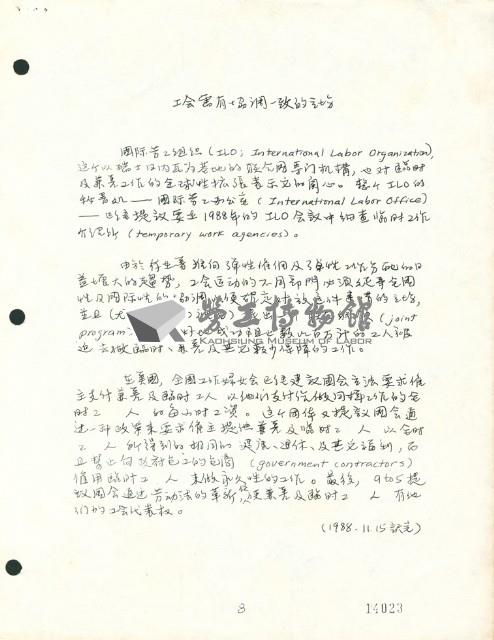 工会需有+协调一致的主场
国际劳工组织 (ILO; International Labor Organization),
这个以瑞士日内瓦为基地的联合国专门机构, 也对临时
及兼差工作的全球性扩张表示它的关心。整个ILO的
秘书处——国际劳工办公室 (International Labor Office)
——已经提议要在1988年的ILO会议中细查临时工作
介绍所 (temporary work agencies)。
由于行业著推向弹性雇佣及弹性工作分配的日
益增大的趋势, 工会运动的不同部门必须延着全国
性及国际性的协调
(joint
program)
数以百万计的工人被
迫去做临时、兼差及其它较少保障的工作。
在美国, 全国工作妇女会已经建议国会立法要求雇
主支付兼差及临时工人以他们支付给做同样工作的全
时工人的每小时工资。这个团体又提议国会通
过一种政策来要求雇主提供兼差及临时工人以全时
工人所得到的相同的退休、及其它福利, 而
且禁止与政府包工的包商 (government contractors)
雇用临时工人来做永久性的工作。最后, 9to5提
议国会通过劳动法的革新使兼差及临时工人有他
们的工会代表权。
(1988.11.15 訳完)
8
14023
劳工博物館
KAOHSIUNG MUSEUM OF LABOR